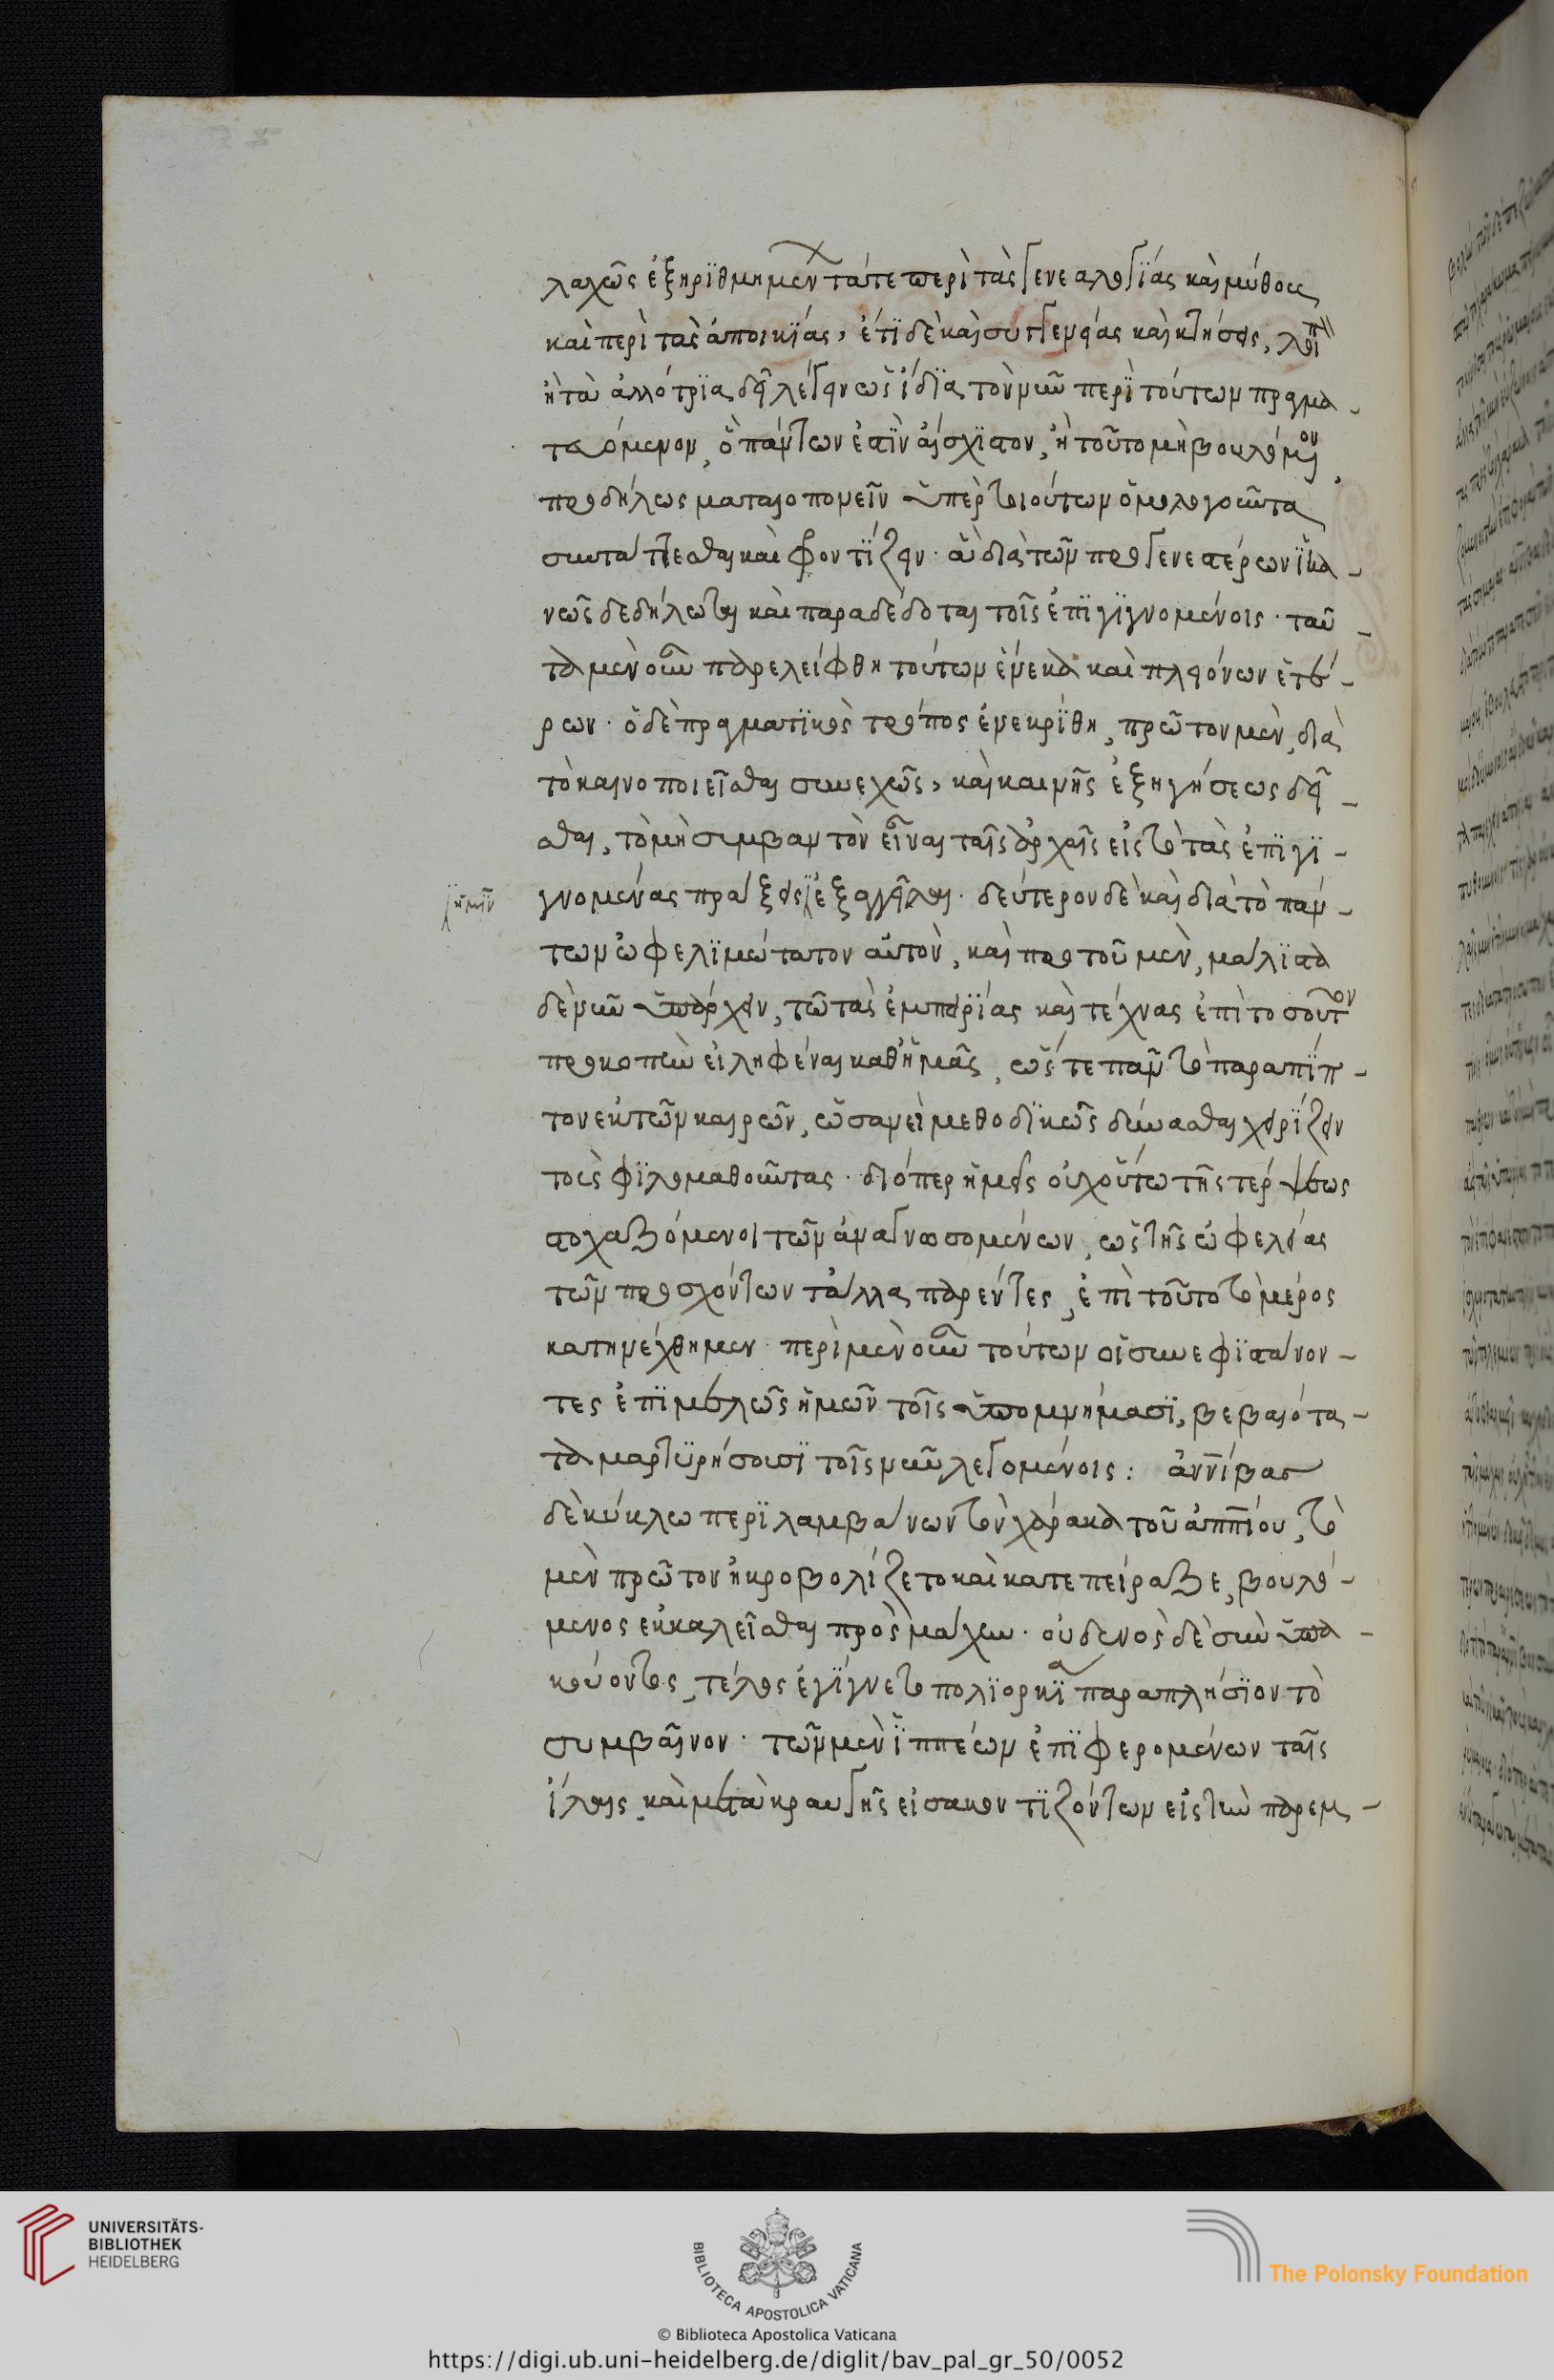 λαχῶς ἐξηριθμημένων τά τε περὶ τὰς γενεαλογίας καὶ μύθους
καὶ περὶ τὰς ἀποικίας, ἔτι δὲ καὶ συγγενείας καὶ κτήσεις, λοιπὸν
ἢ τὰ ἀλλότρια δεῖ λέγειν ὡς ἴδια τὸν νῦν περὶ τούτων πραγμα-
τευόμενον, ὃ πάντων ἐστὶν αἴσχιστον, ἢ τοῦτο μὴ βουλόμενον
προδήλως ματαιοπονεῖν ὑπὲρ τοιούτων ὁμολογοῦντα
συντάττεσθαι καὶ φροντίζειν· ἃ διὰ τῶν προγενεστέρων ἱκα-
νῶς δεδήλωται καὶ παραδέδοται τοῖς ἐπιγιγνομένοις· ταῦ-
τα μὲν οὖν παρελείφθη τούτων ἕνεκα καὶ πλειόνων ἑτέ-
ρων· ὁ δὲ πραγματικὸς τρόπος ἐνεκρίθη, πρῶτον μὲν, διὰ
τὸ καινοποιεῖσθαι συνεχῶς, καὶ καινῆς ἐξηγήσεως δεῖ-
σθαι, τὸ μὴ συμβαντὸν εἶναι ταῖς ἀρχαῖς εἰς τὸ τὰς ἐπιγι-
γνομένας πράξεις ἐξαγγεῖλαι· δεύτερον δὲ καὶ διὰ τὸ πάν-
ἡμῖν
των ὠφελιμώτατον αὐτὸν, καὶ πρὸ τοῦ μὲν, μάλιστα
δὲ νῦν ὑπάρχειν, τῷ τὰς ἐμπειρίας καὶ τέχνας ἐπὶ τοσοῦτον
προκοπὴν εἰληφέναι καθ' ἡμᾶς, ὥστε πᾶν τὸ παραπίπ-
τον ἐκ τῶν καιρῶν, ὡσανεὶ μεθοδικῶς δύνασθαι χειρίζειν
τοὺς φιλομαθοῦντας· διόπερ ἡμεῖς οὐχ οὕτω τῆς τέρψεως
στοχαζόμενοι τῶν ἀναγνωσομένων, ὡς τῆς ὠφελείας
τῶν προσχόντων τἄλλα παρέντες, ἐπὶ τοῦτο τὸ μέρος
κατηνέχθημεν· περὶ μὲν οὖν τούτων οἱ συνεφιστάνον-
τες ἐπιμελῶς ἡμῶν τοῖς ὑπομνήμασι, βεβαιότα-
τα μαρτυρήσουσι τοῖς νῦν λεγομένοις: ἀννίβας
δὲ κύκλω περιλαμβάνων τὸν χάρακα τοῦ ἀππίου, τὸ
μὲν πρῶτον ἠκροβολίζετο καὶ κατεπείραζε, βουλό-
μενος ἐκκαλεῖσθαι πρὸς μάχην· οὐδενὸς δὲ συνυπα-
κούοντος, τέλος ἐγίγνετο πολιορκία παραπλήσιον τὸ
συμβαῖνον· τῶν μὲν ἱππέων ἐπιφερομένων ταῖς
ἴλαις, καὶ μετὰ κραυγῆς εἰσακοντιζόντων εἰς τὴν παρεμ-
UNIVERSITÄTS-
BIBLIOTHEK
HEIDELBERG
BIBLIOTECA APOSTOLICA VATICANA
The Polonsky Foundation
© Biblioteca Apostolica Vaticana
https://digi.ub.uni-heidelberg.de/diglit/bav_pal_gr_50/0052